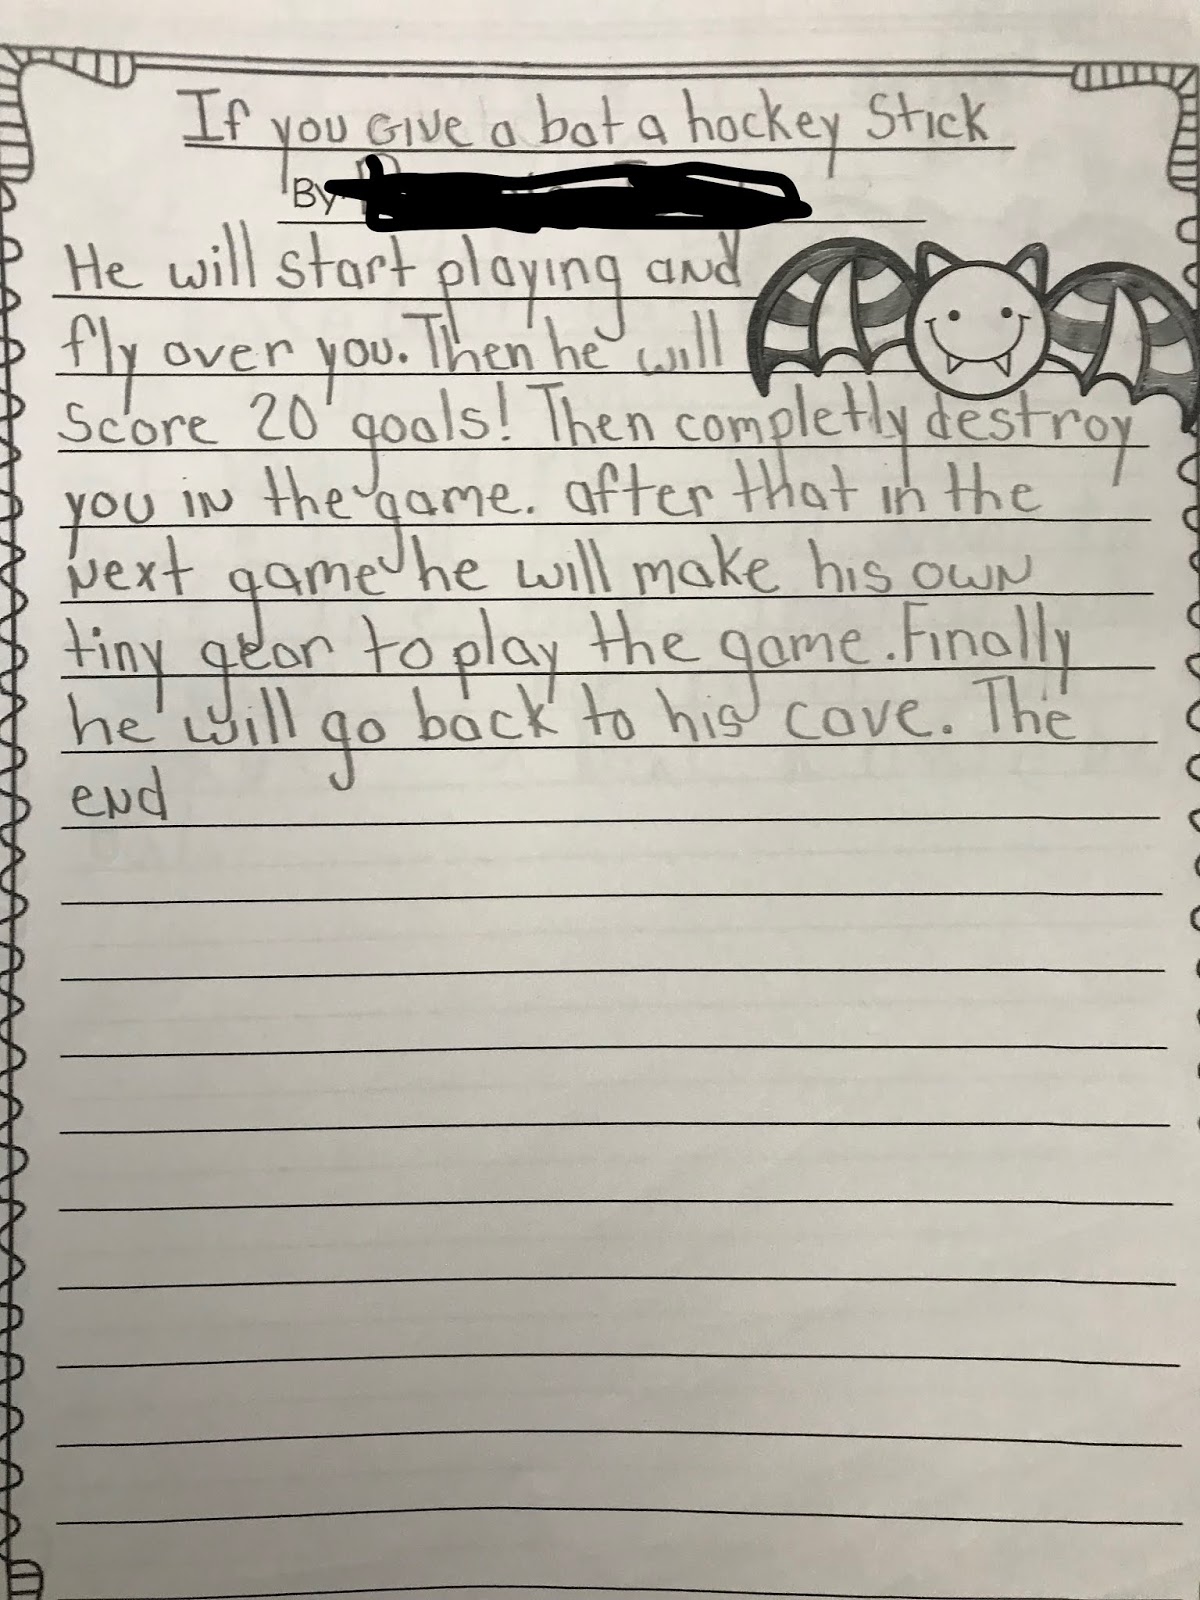 If you Give a bat a hockey Stick
By
He will start playing and
fly over you. Then he will
Score 20 goals! Then completly destroy
you in the game. after that in the
Next game he will make his own
tiny gear to play the game. Finally
he will go back to his cave. The
end